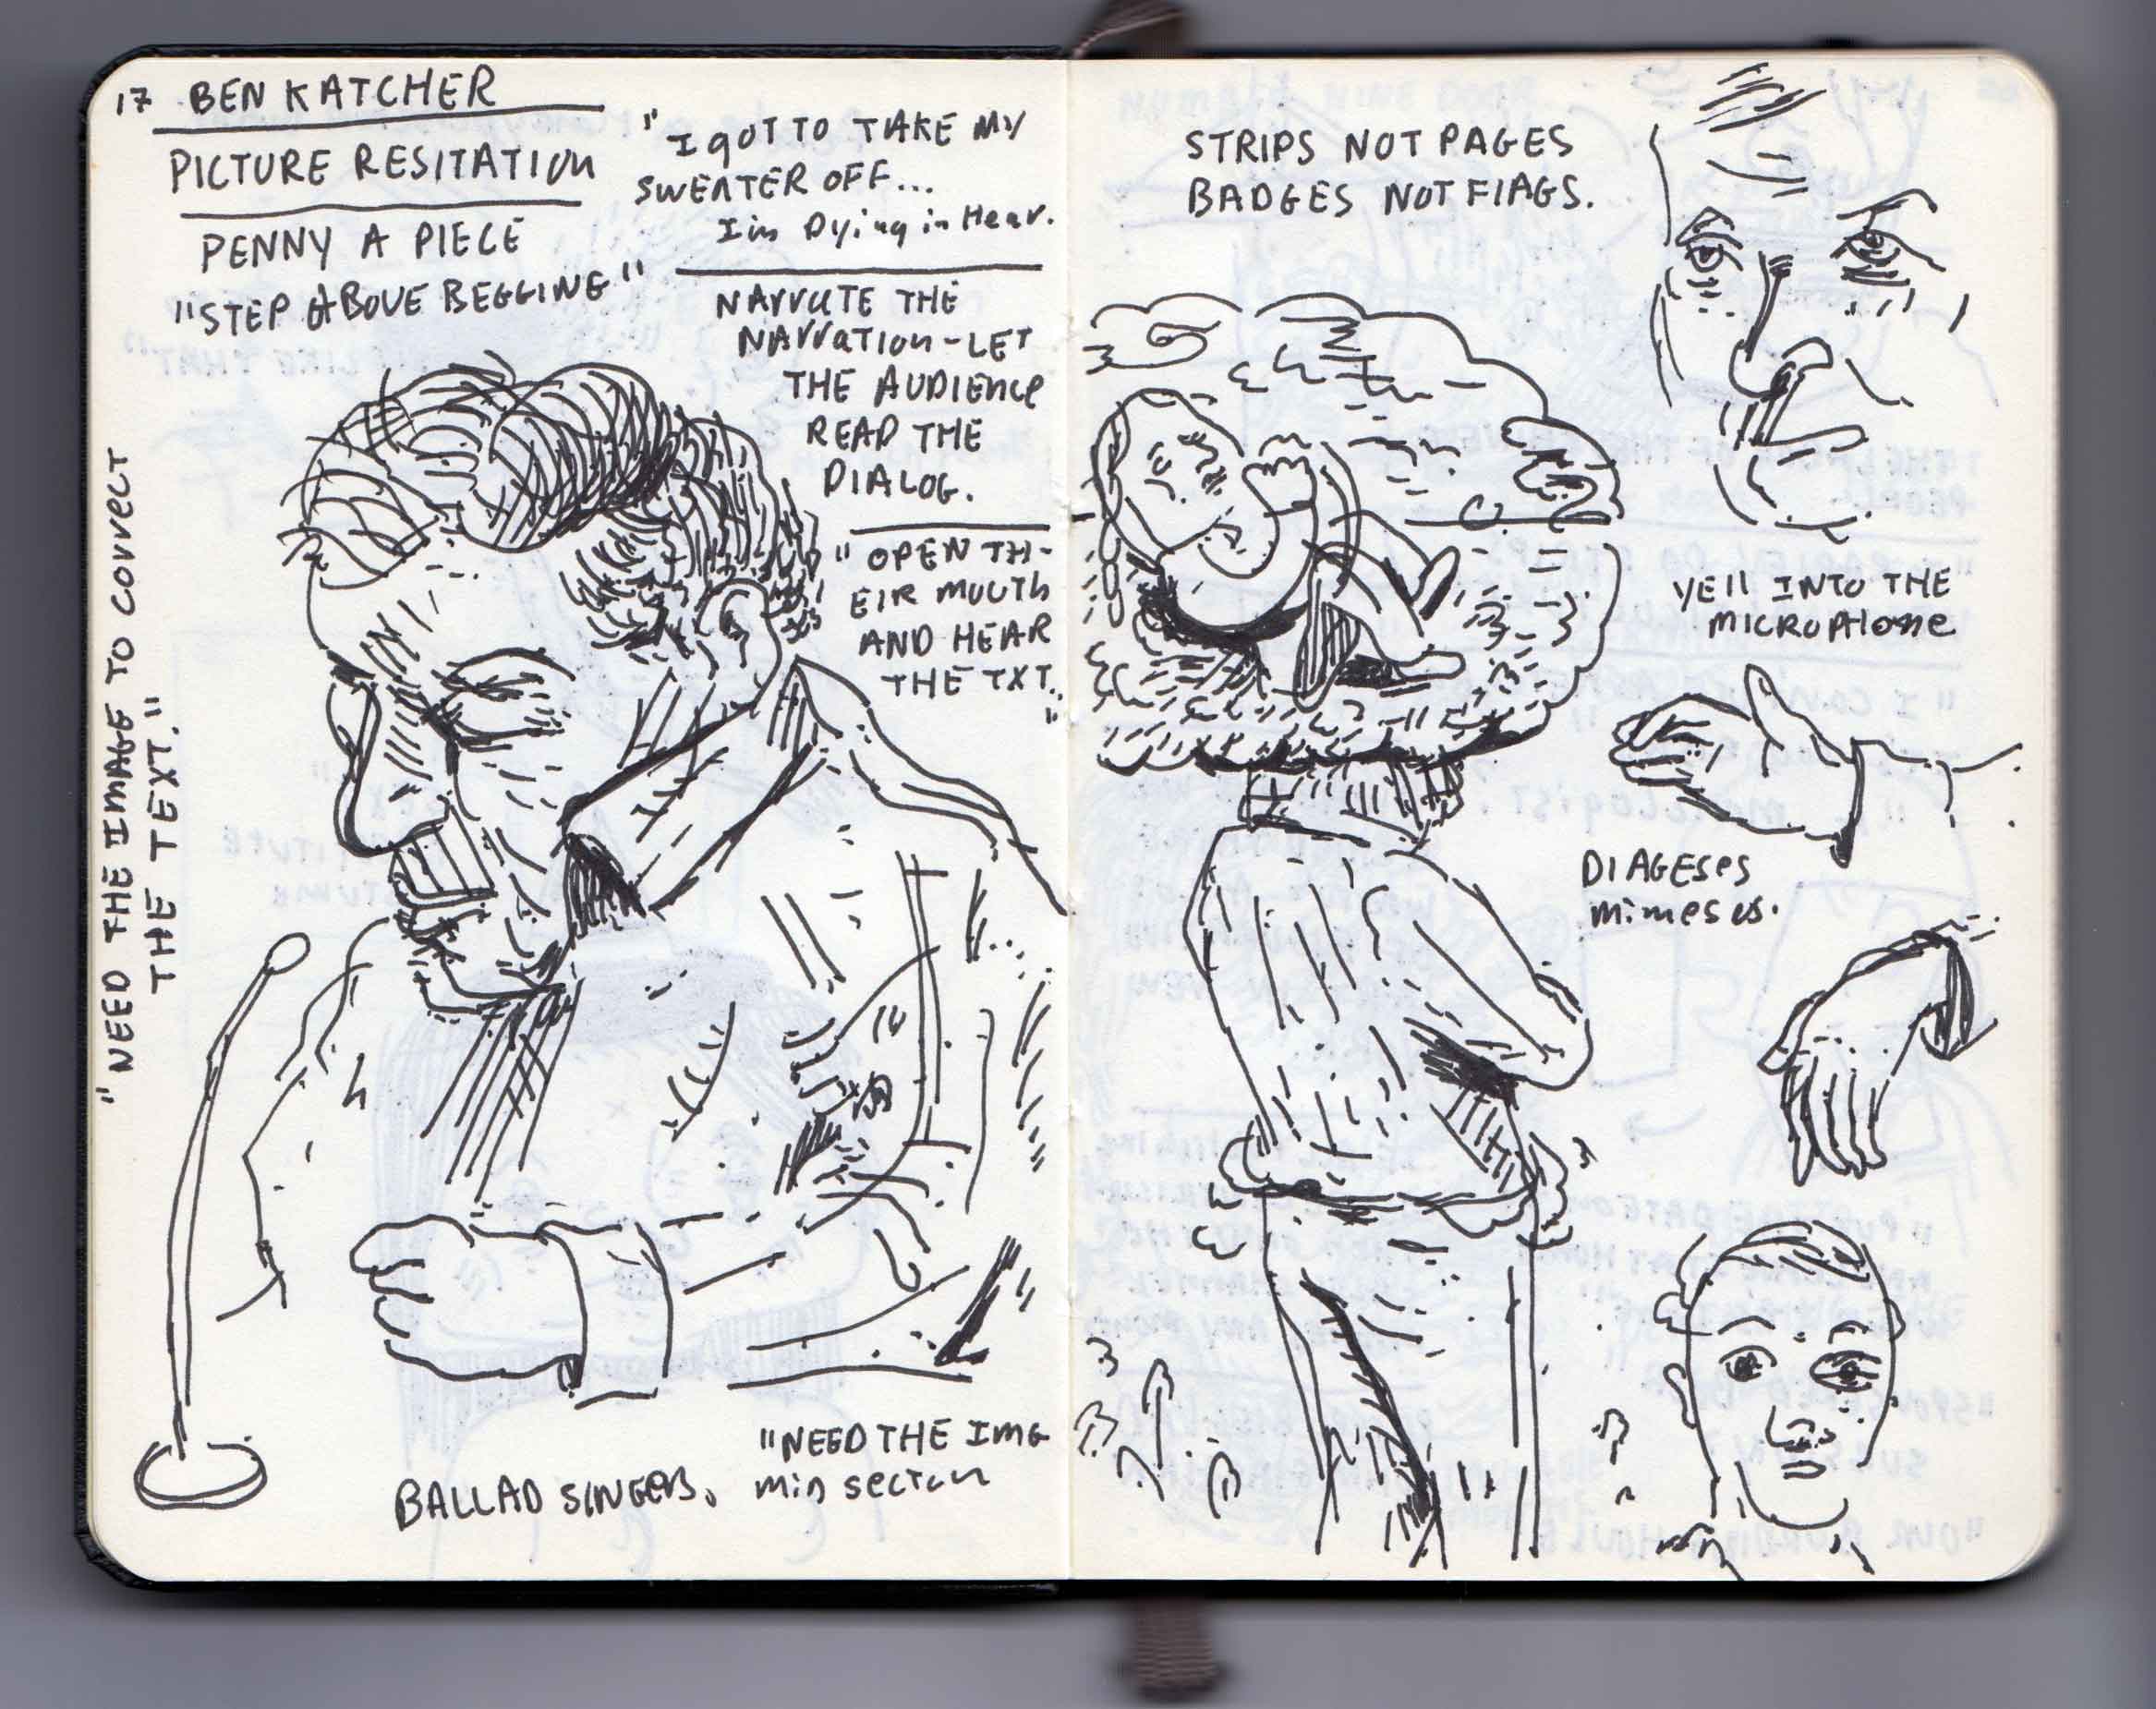 17 BEN KATCHER
PICTURE RESITATION
PENNY A PIECE
"STEP ABOVE BEGGING"
"I GOT TO TAKE MY
SWEATER OFF...
I'm Dying in Hear.
NARRATE THE
NARRATION - LET
THE AUDIENCE
READ THE
DIALOG.
"OPEN TH-
EIR MOUTH
AND HEAR
THE TXT.
"
"NEED THE IMAGE TO CORRECT
THE TEXT."
BALLAD SINGERS.
"NEED THE IMG
STRIPS NOT PAGES
BADGES NOT FLAGS.
YELL INTO THE
MICROPHONE
DIAGESES
mimesis.